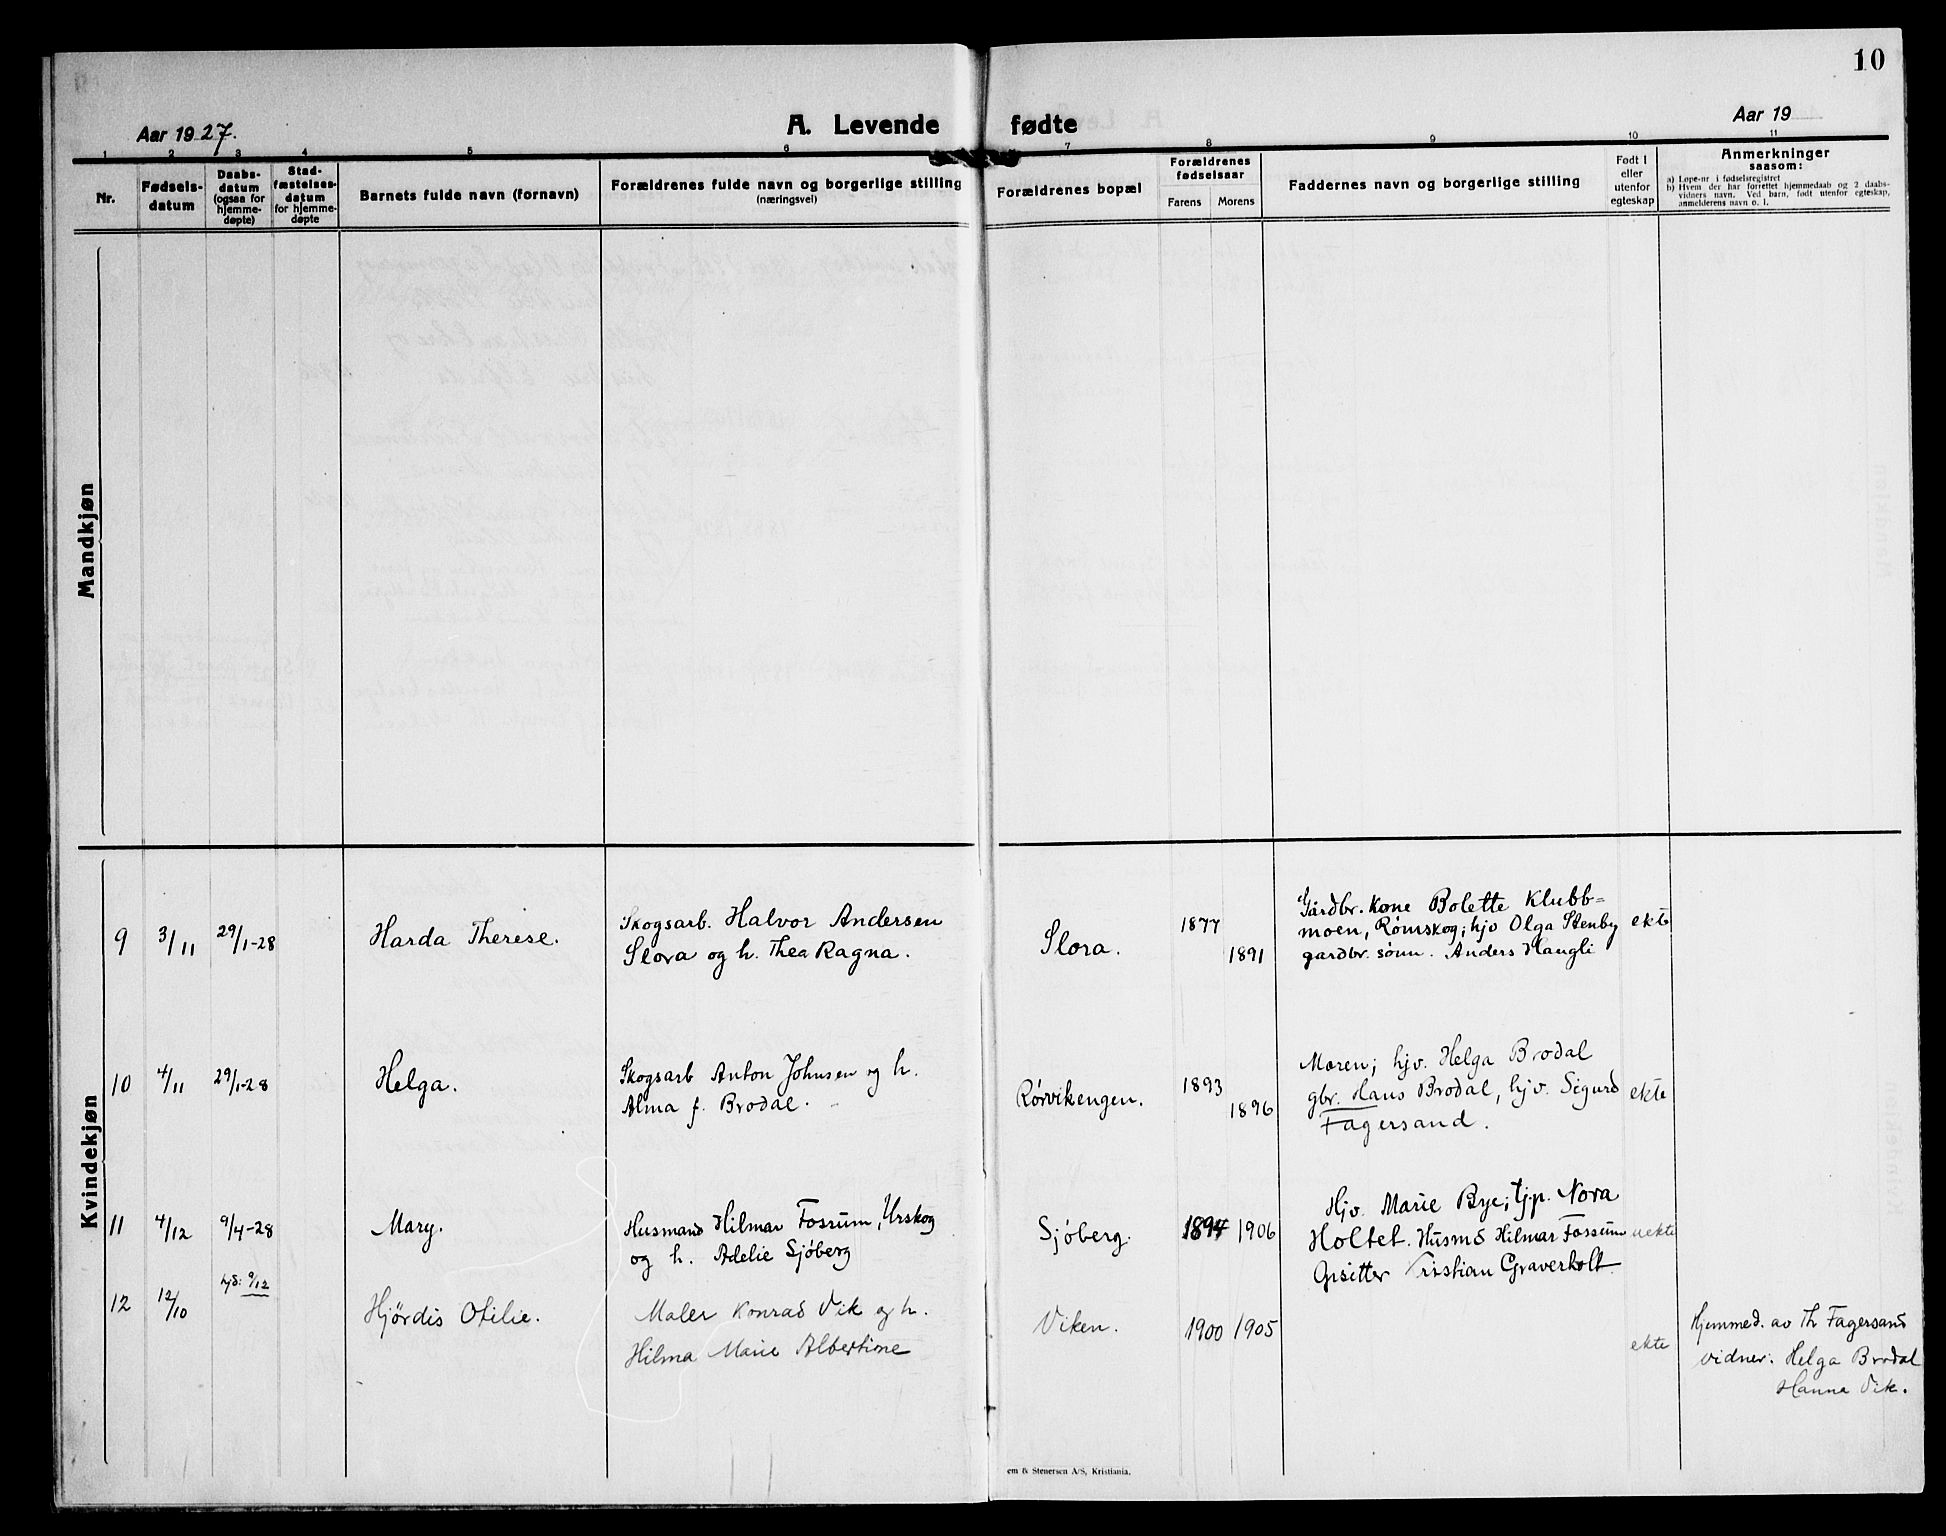 10
Aar 1927.
A. Levende fødte
Aar 19
1 2 3 4 5 6 7 8 9 10 11
Nr.
Fødsels-
datum
Daabs-
datum
(ogsaa for
hjemme-
døpte)
Stad-
fæstelses-
datum
for hjemme-
døpte
Barnets fulde navn (fornavn)
Forældrenes fulde navn og borgerlige stilling
(næringsvei)
Forældrenes bopæl
Forældrenes
fødselsaar
Farens Morens
Faddernes navn og borgerlige stilling
Født i
eller
utenfor
egteskap
Anmerkninger
saasom:
a) Løpe-nr i fødselsregistret
b) Hvem der har forrettet hjemmedaab og 2 daabs-
vidners navn. Ved barn, født utenfor egteskap,
anmelderens navn o. l.
Mandkjøn
Kvindekjøn
9 3/11 29/1-28 Harda Therese.
Skogsarb. Halvor Andersen
Slora og h. Thea Ragna.
Slora.
1877 1891
Gårdbr. kone Bolette Klubb=
moen, Rømskog; hjv Olga Stenby
gardbr. sønn. Anders Haugli
ekte
10 4/11 29/1-28 Helga.
Skogsarb Anton Johnsen og h.
Alma f. Brodal.
Rørvikengen.
1893 1896
Moren; hjv. Helga Brodal
gbr. Hans Brodal, hjv. Sigurd
Fagersand.
ekte
11 4/12 9/4-28 Mary.
Husmand Hilmar Fossum, Urskog
og h. Adelie Sjöberg
Sjöberg.
1894 1906
Hjv. Marie Bye; tj.p. Nora
Holtet. Husmd Hilmar Fossum
Grsitter Kristian Graverholt
uekte
12 12/10 9/12 Hjørdis Otilie.
Maler Konrad Vik og h.
Hilma Marie Albertine
Viken.
1900 1905
ekte
Hjemmed. av Th Fagersand
vidner: Helga Brodal
Hanna Vik.
em & Stenersen A/S, Kristiania.